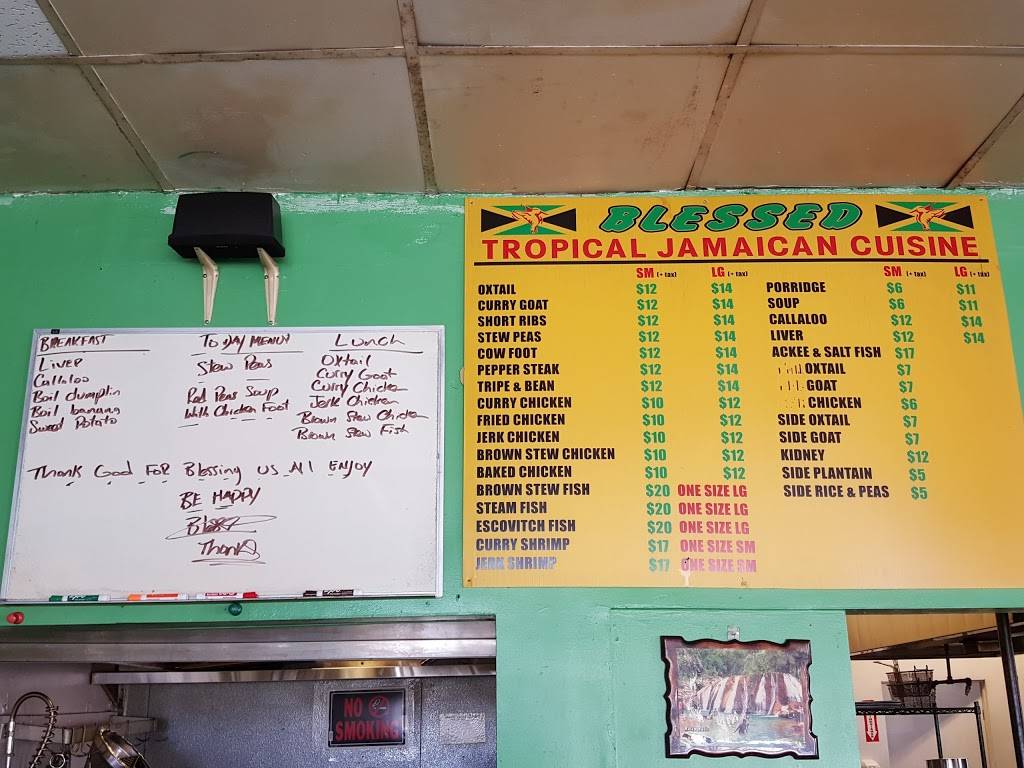 BREAKFAST
Liver
Callaloo
Boil dumplin
Boil banana
Sweet Potato
TODAY MENU
Stew Peas
Red Peas Soup
With Chicken Foot
Lunch
Oxtail
Curry Goat
Curry Chicken
Jerk Chicken
Brown Stew Chicken
Brown Stew Fish
Thank God FOR Blessing US All ENJOY
BE HAPPY
Thanks
BLESSED
TROPICAL JAMAICAN CUISINE
SM (+ tax) LG (+ tax)
OXTAIL $12 $14
CURRY GOAT $12 $14
SHORT RIBS $12 $14
STEW PEAS $12 $14
COW FOOT $12 $14
PEPPER STEAK $12 $14
TRIPE & BEAN $12 $14
CURRY CHICKEN $10 $12
FRIED CHICKEN $10 $12
JERK CHICKEN $10 $12
BROWN STEW CHICKEN $10 $12
BAKED CHICKEN $10 $12
BROWN STEW FISH $20 ONE SIZE LG
STEAM FISH $20 ONE SIZE LG
ESCOVITCH FISH $20 ONE SIZE LG
CURRY SHRIMP $17 ONE SIZE SM
JERK SHRIMP $17 ONE SIZE SM
SM (+ tax) LG (+ tax)
PORRIDGE $6 $11
SOUP $6 $11
CALLALOO $12 $14
LIVER $12 $14
ACKEE & SALT FISH $17
OXTAIL $7
GOAT $7
CHICKEN $6
SIDE OXTAIL $7
SIDE GOAT $7
KIDNEY $12
SIDE PLANTAIN $5
SIDE RICE & PEAS $5
NO SMOKING